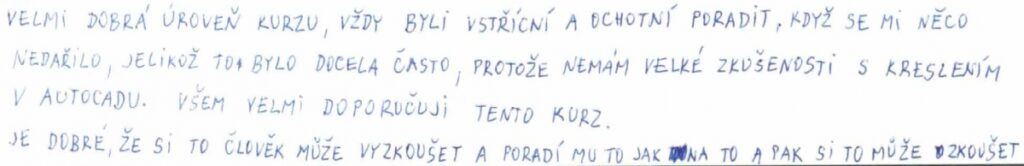 VELMI DOBRÁ ÚROVEŇ KURZU, VŽDY BYLI VSTŘÍCNÍ A OCHOTNÍ PORADIT, KDYŽ SE MI NĚCO
NEDAŘILO, JELIKOŽ TO BYLO DOCELA ČASTO, PROTOŽE NEMÁM VELKÉ ZKUŠENOSTI S KRESLENÍM
V AUTOCADU. VŠEM VELMI DOPORUČUJI TENTO KURZ.
JE DOBRÉ, ŽE SI TO ČLOVĚK MŮŽE VYZKOUŠET A PORADÍ MU TO JAK NA TO A PAK SI TO MŮŽE ZKOUŠET